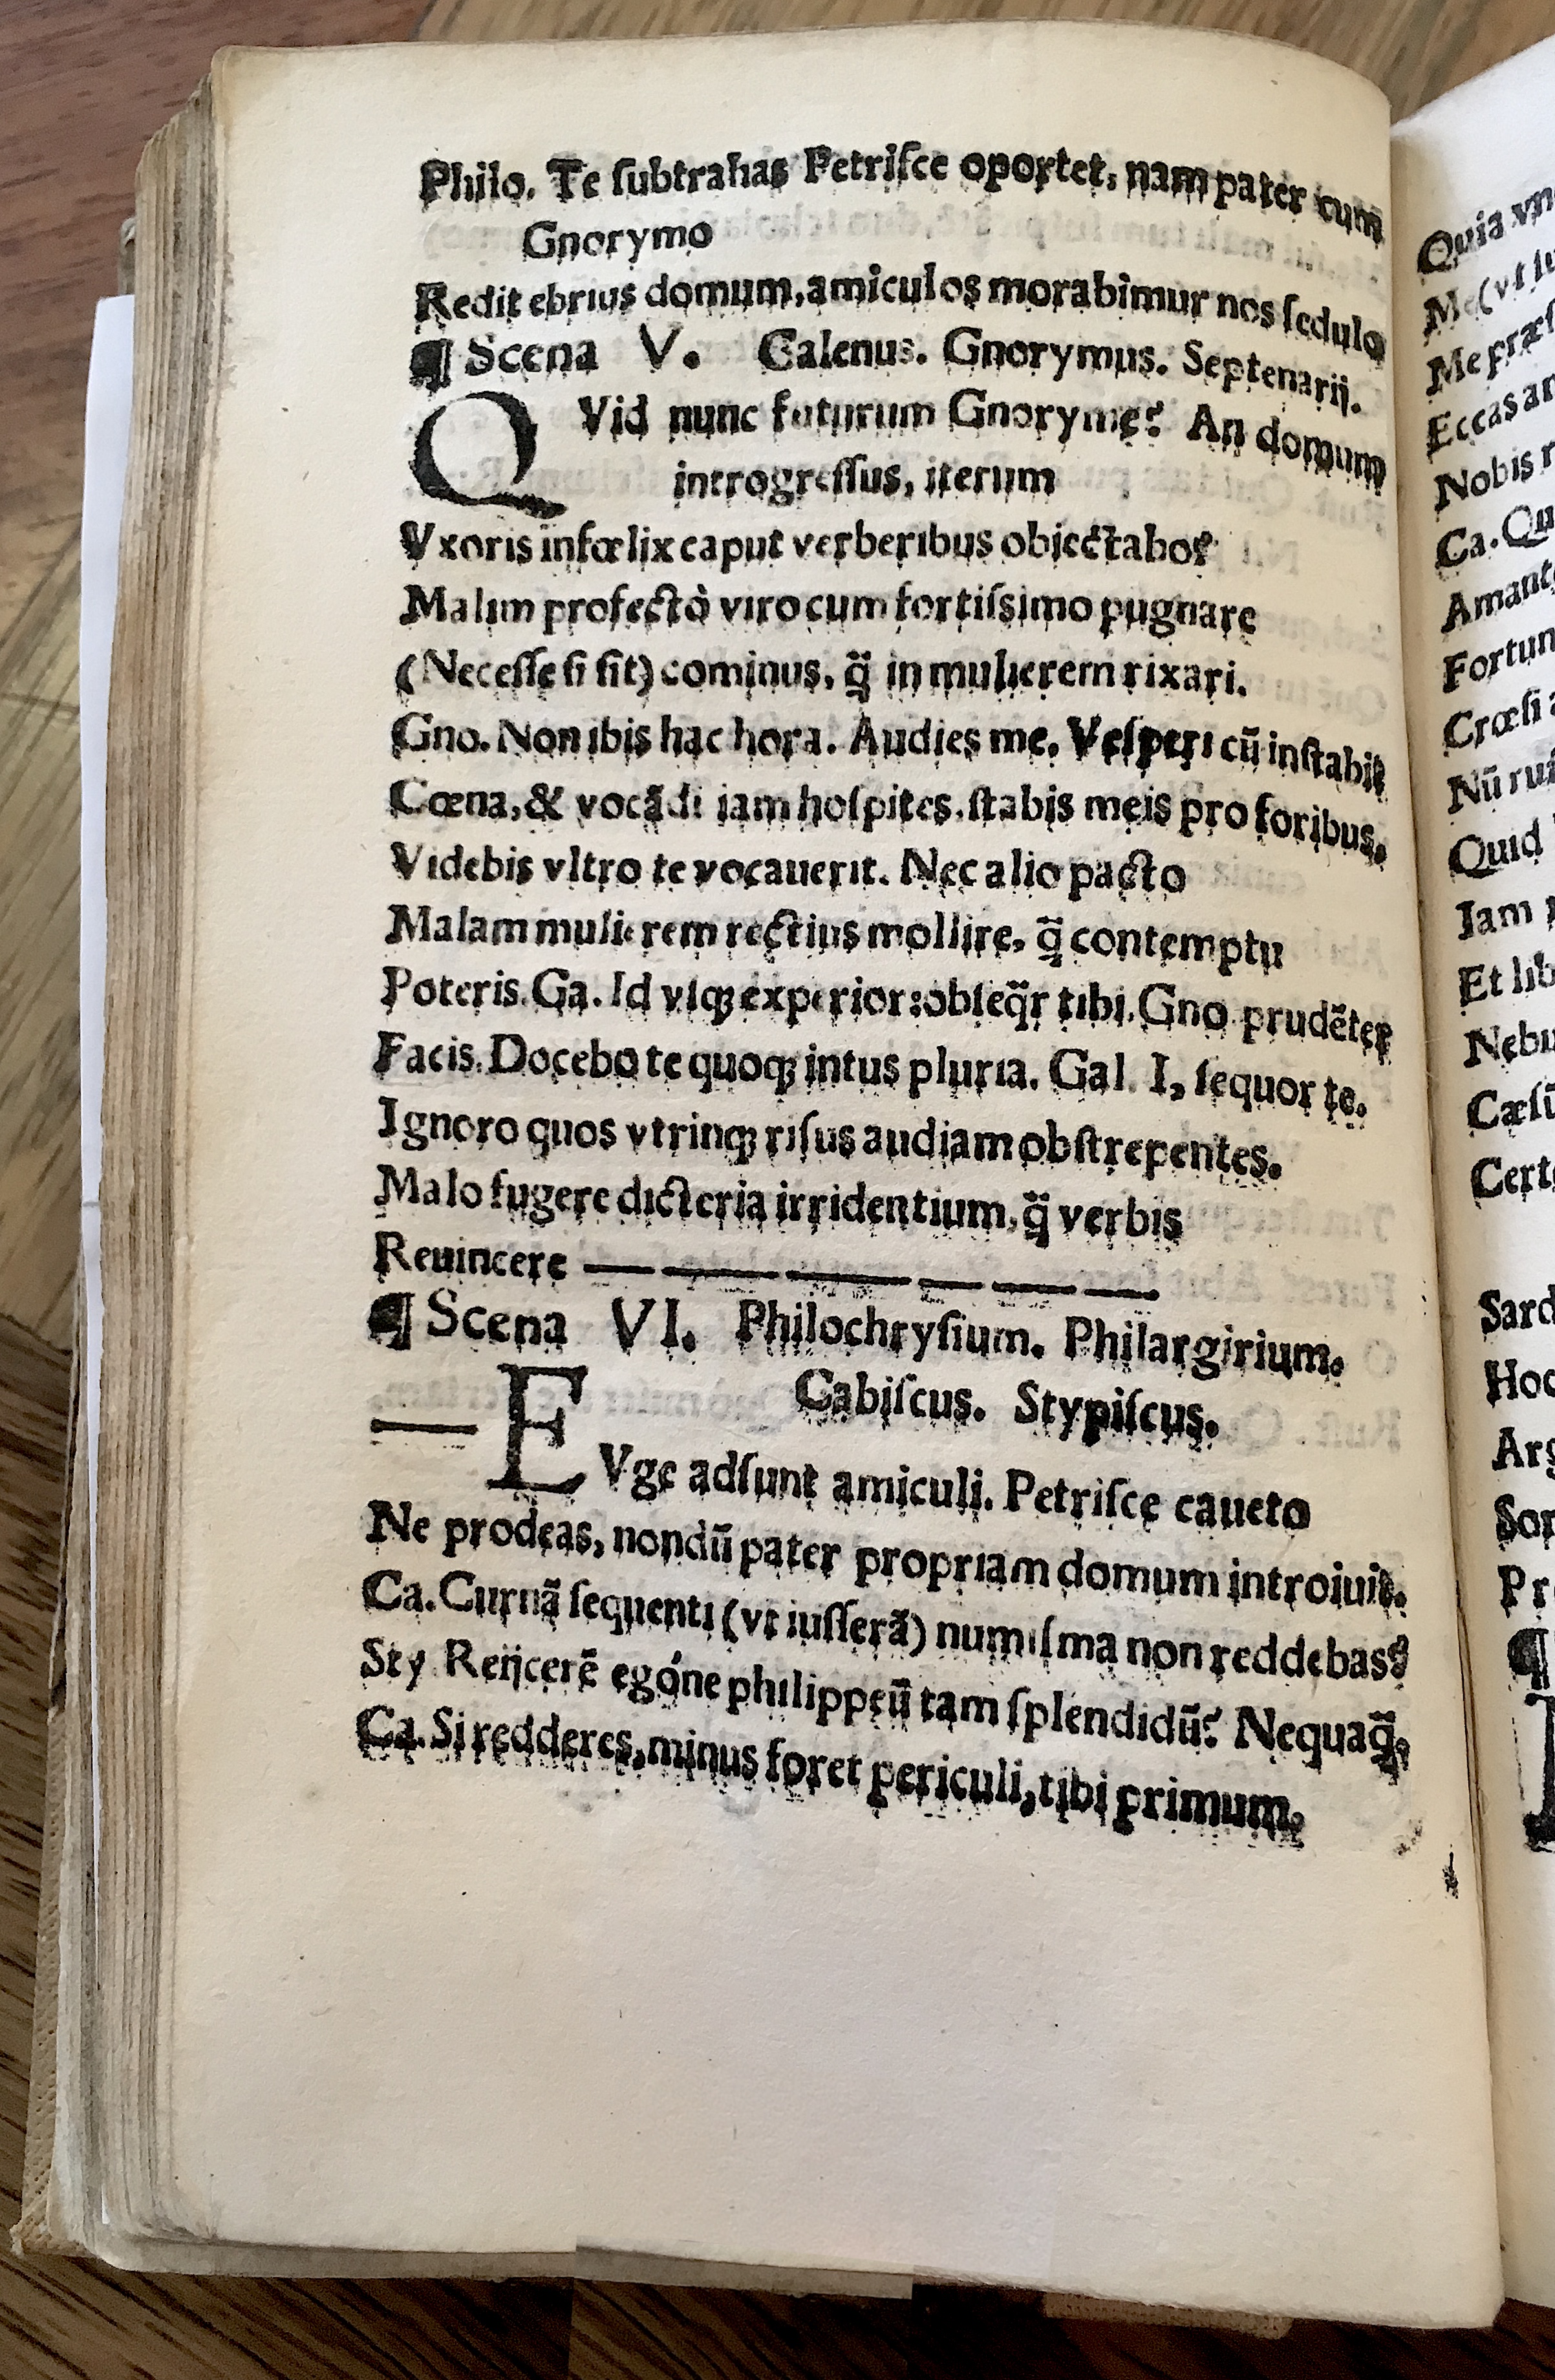 Philo. Te ſubtrahas Petriſce oportet, nam pater cum
Gnorymo
Redit ebrius domum, amiculos morabimur nos ſedulo
¶ Scena V. Galenus. Gnorymus. Septenarij.
QVid nunc futurum Gnoryme? An domum
introgreſſus, iterum
Vxoris infœlix caput verberibus obiectabo?
Malim profectò viro cum fortiſsimo pugnare
(Neceſſe ſi ſit) cominus, q̃ in mulierem rixari.
Gno. Non ibis hac hora. Audies me. Veſperi cũ inſtabit
Cœna, & vocãdi iam hoſpites, ſtabis meis pro foribus.
Videbis vltro te vocauerit. Nec alio pacto
Malam mulierem rectius mollire, q̃ contemptu
Poteris. Ga. Id vſqꝫ experior: obſeq̃r tibi. Gno prudẽter
Facis. Docebo te quoqꝫ intus pluria. Gal. I, ſequor te.
Ignoro quos vtrinqꝫ riſus audiam obſtrepentes.
Malo fugere dicteria irridentium, q̃ verbis
Reuincere — — — — — —
¶ Scena VI. Philochryſium. Philargirium.
Cabiſcus. Stypiſcus.
— EVge adſunt amiculi. Petriſce caueto
Ne prodeas, nondũ pater propriam domum introiuit.
Ca. Cur nã ſequenti (vt iuſſerã) numiſma non reddebas?
Sty Reijcerẽ egóne philippeũ tam ſplendidũ? Nequaq̃.
Ca. Si redderes, minus foret periculi, tibi primum.
Quia
Me (vt
Me
Eccas
Nobis
Ca.
Fortun
Crœſi
Nũ
Quid
Iam
Et
Cæſũ
Hoc